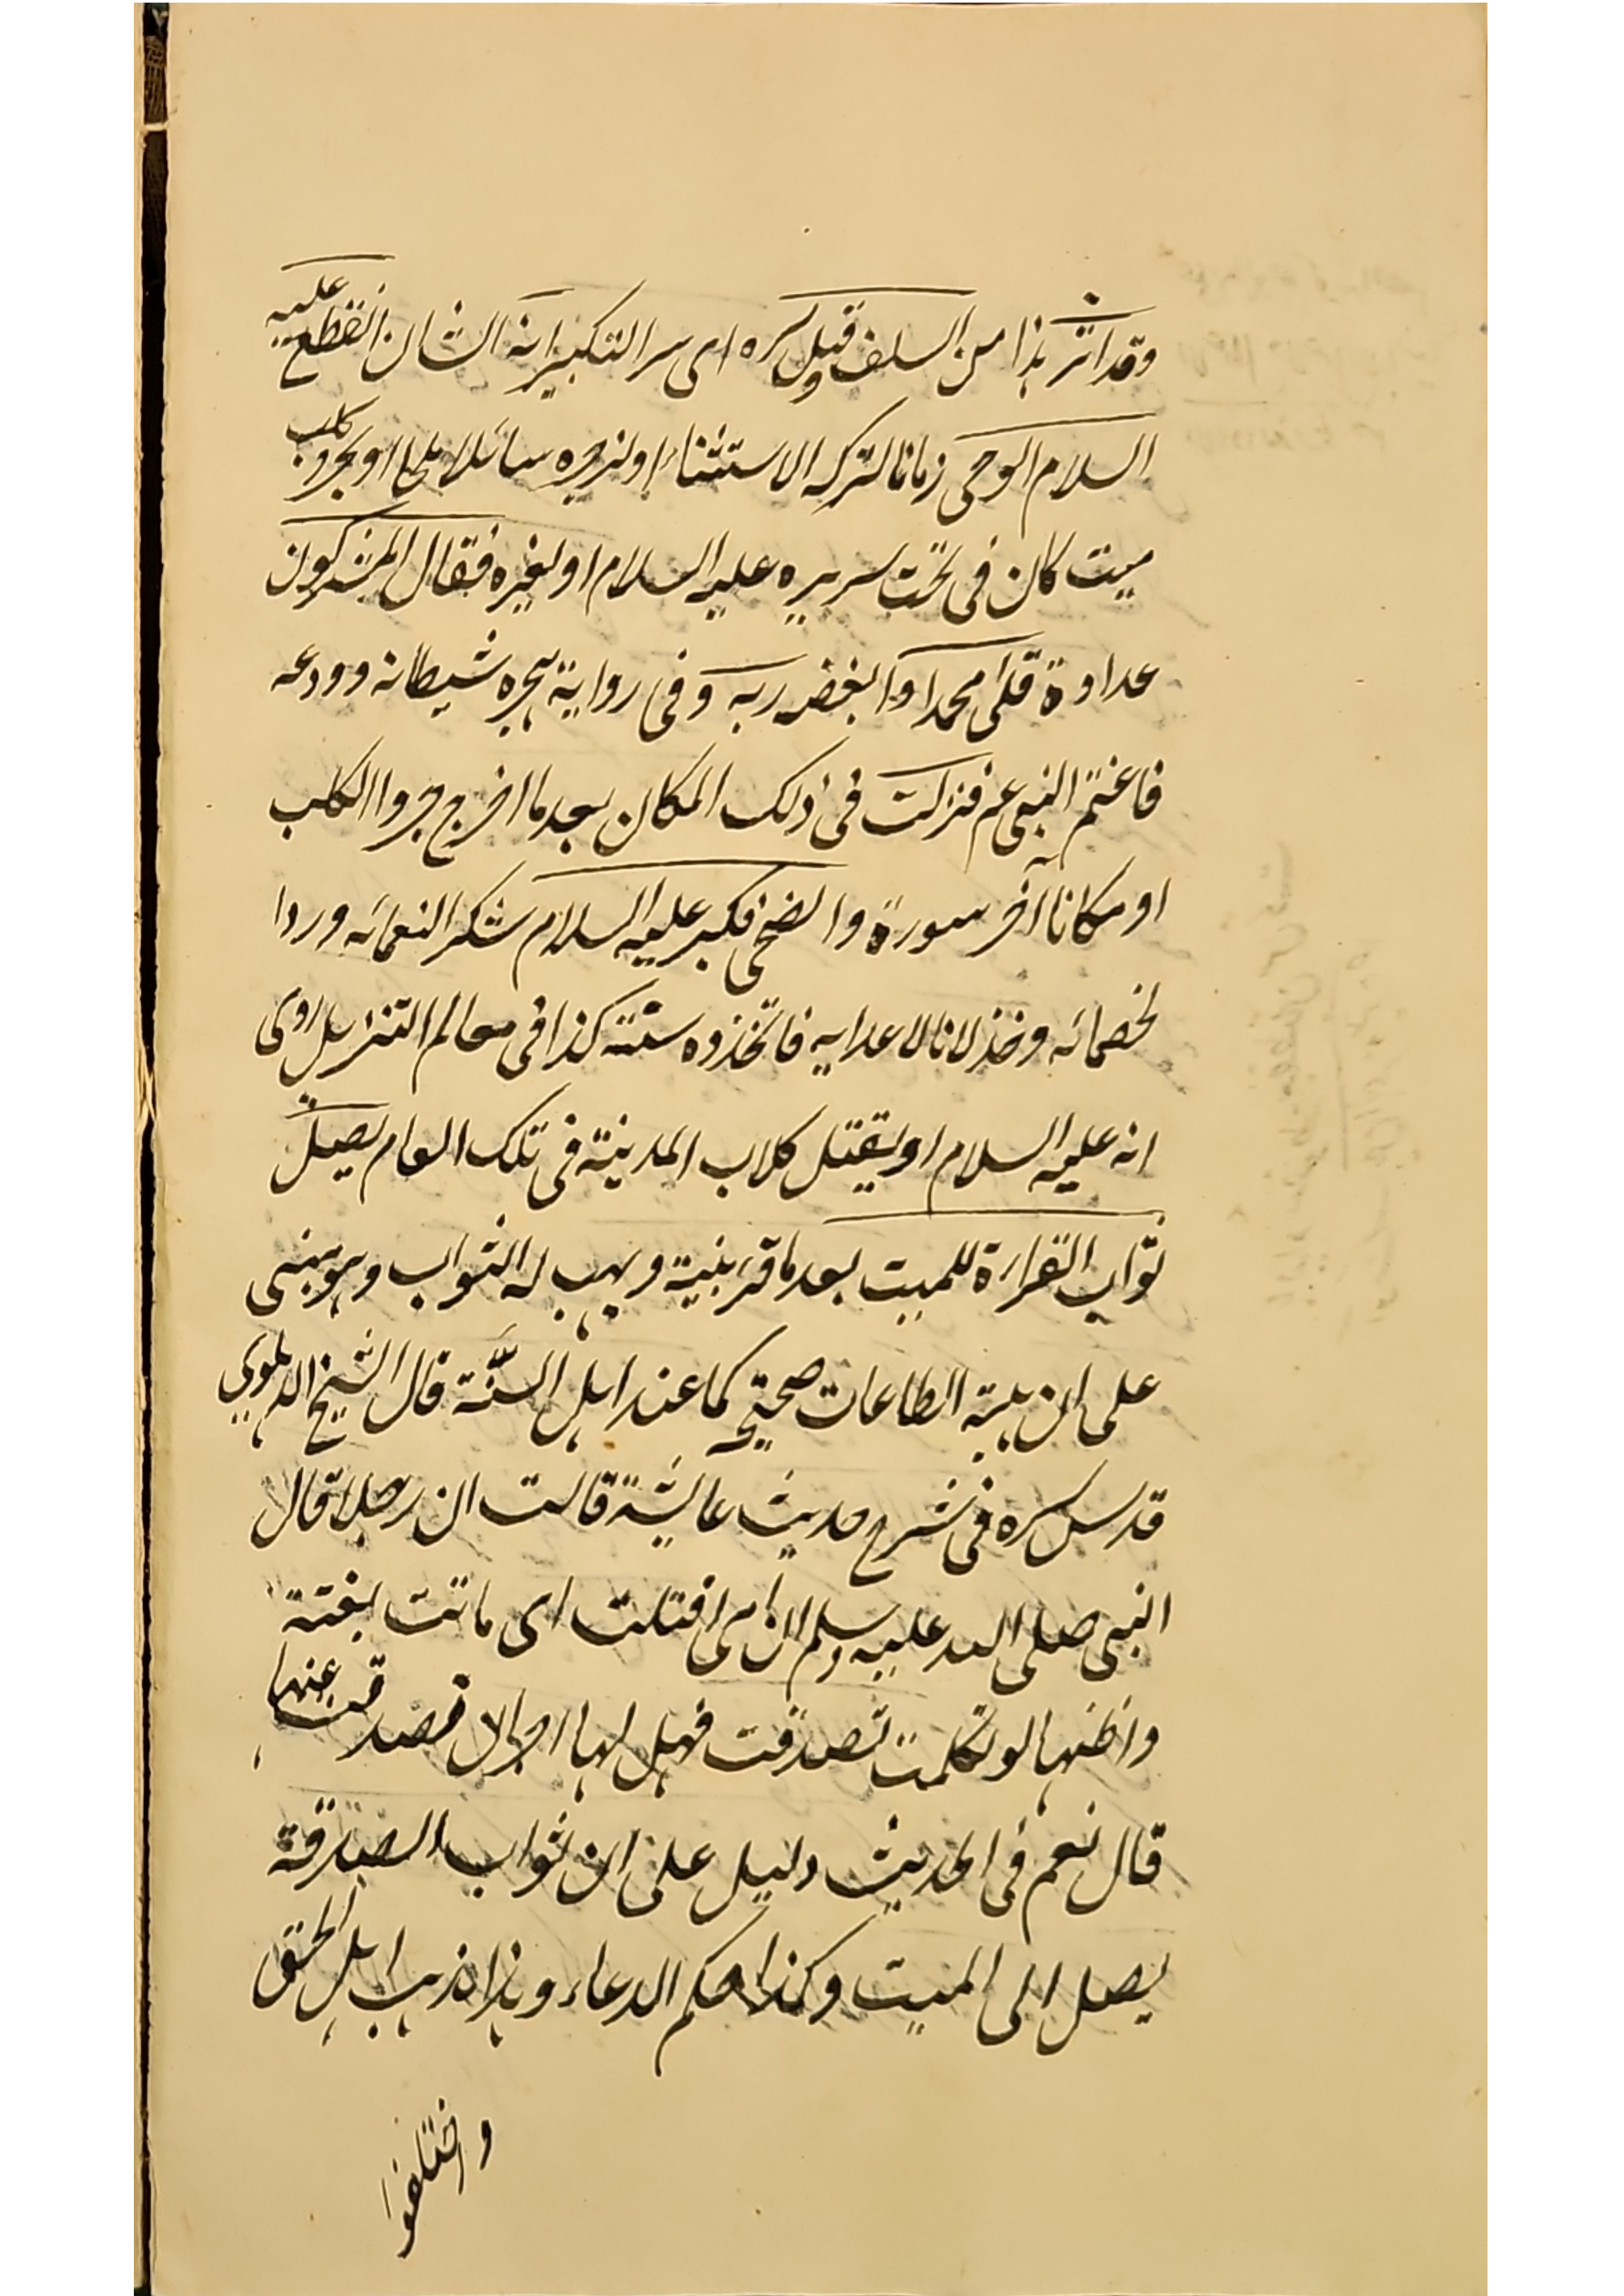 وقد اثر هذا من السلف وقيل سره اى سر التكبير انه الشان انقطع عليه
السلام الوحى زمانا لتركه الاستثناء او لزجره سائلا ملحا او بجرو كلب
ميت كان فى تحت سريره عليه السلام او لغيره فقال المشركون
عداوة قلى محمدا وابغضه ربه وفى رواية هجره شيطانه وودعه
فاغتم النبى عم فنزلت فى ذلك المكان بعد ما اخرج جروا الكلب
او مكانا آخر سورة والضحى فكبر عليه السلام شكر النعمائه وردا
لخصمائه وخذلانا لاعدايه فاتخذوه سنته كذا فى معالم التنزيل روى
انه عليه السلام او يقتل كلاب المدينة فى تلك العام يصل
ثواب القراءة للميت بعد ما قرء بنية ويهب له الثواب وهو مبنى
على ان هبة الطاعات صحيحة كما عند اهل السنة قال الشيخ الدهلوى
قدس سره فى شرح حديث عايشة قالت ان رجلا قال
النبى صلى الله عليه وسلم ان امى افتلتت اى ماتت بغتة
واظنها لو تكلمت تصدقت فهل لها اجر ان تصدقت عنها
قال نعم فى الحديث دليل على ان ثواب الصدقة
يصل الى الميت وكذا حكم الدعاء وهذا مذهب اهل الحق
واختلفوا